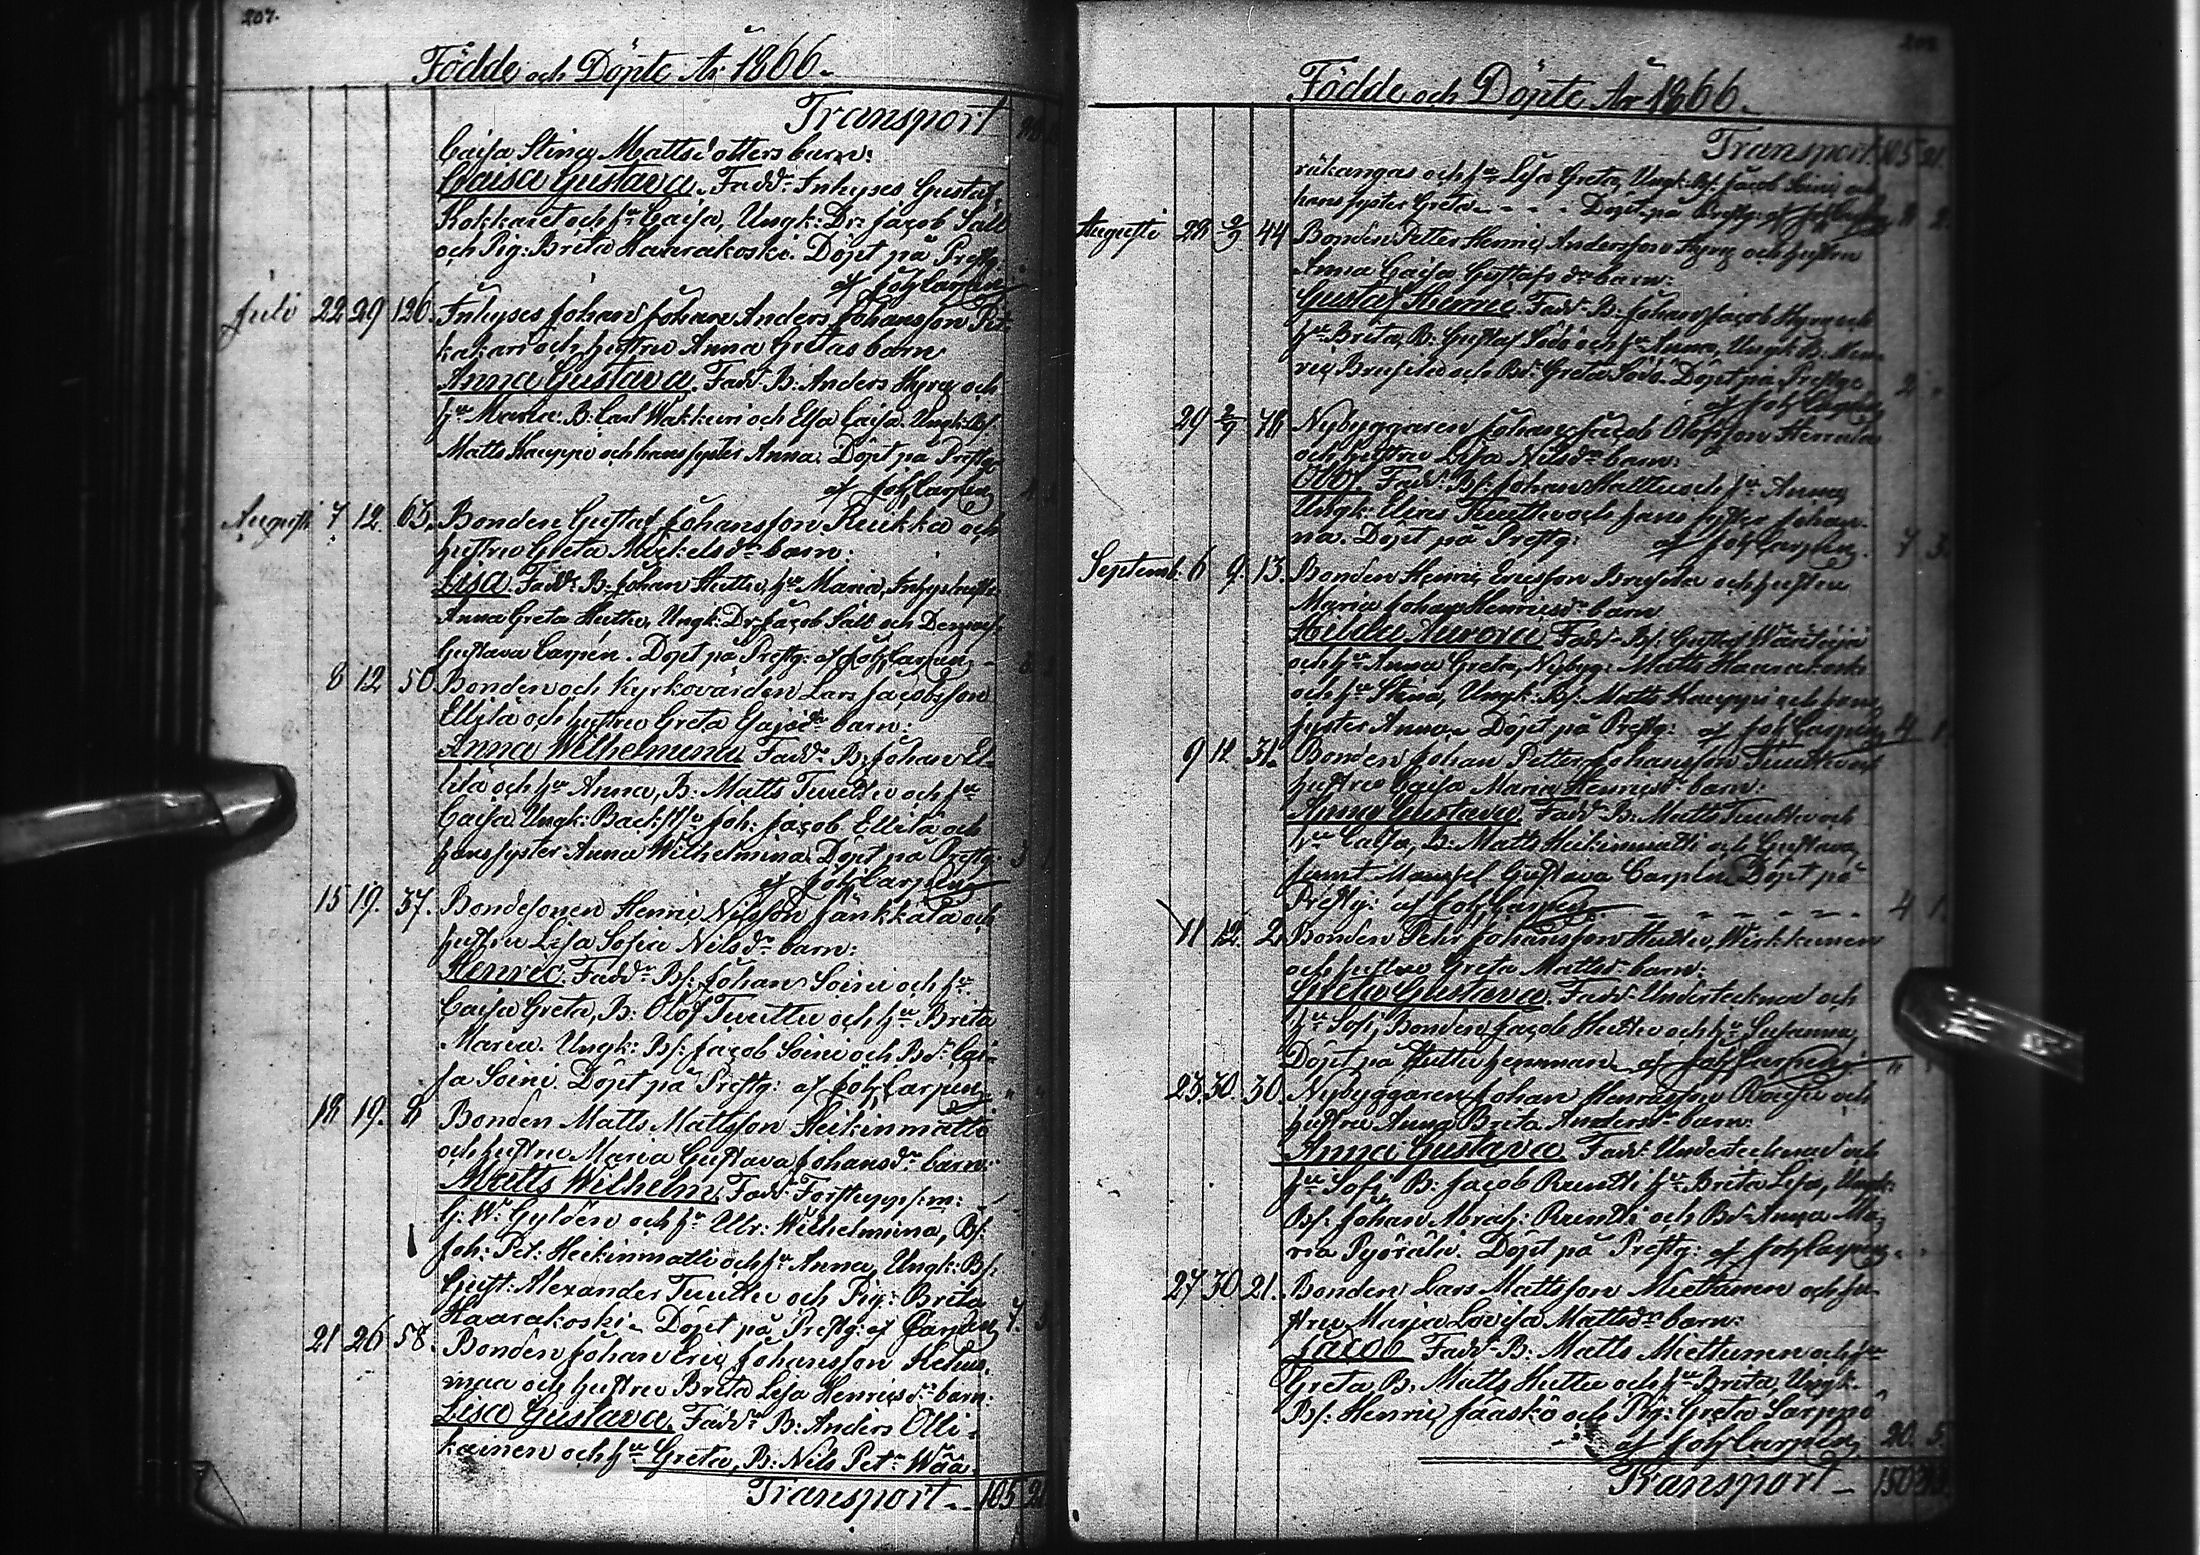 207.
Födde och Döpte År 1866.
Transport
Caisa Stina Mattsdotters barn:
Caisa Gustava. Fadd: Inhyses Gustaf
Kokkaret och hu Caisa, Ungk: Dr: Jacob Säll
och Pig: Brita Haarakoski. Döpt på Prestg:
af Joh Carpén
Juli 22 29 126. Inhyses Johan Johan Anders Johansson Pit-
kakari och hustru Anna Gretas barn
Anna Gustava. Fadd: B: Anders Hyry och
hu Maria: B: Carl Wakkuri och Elsa Caisa. Ungk: Bs:
Matts Hauppi och hans syster Anna. Döpt på Prestg:
af Joh Carpén
Augusti 7 12 63. Bonden Gustaf Johansson Ruikka och
hustru Greta Mickelsdr barn:
Lisa. Fadd: B: Johan Huttu, hu Maria,
Anna Greta Huttu, Ungk: Dr: Jacob Säll och
Gustava Carpén. Döpt på Prestg: af Joh Carpén
8 12 50 Bonden och Kyrkovärden Lars Jacobsson
Ellilä och hustru Greta barn:
Anna Wilhelmina. Fadd: B: Johan El-
lilä och hu Anna, B: Matts Tuuttu och hu
Caisa Ungk: Joh: Jacob Ellilä och
hans syster Anna Wilhelmina. Döpt på Prestg: 3
af Joh Carpén
15 19. 37. Bondesonen Henric Nilsson Jänkkälä och
hustru Lisa Sofia Nilsdr barn:
Henric. Fadd: Bs: Johan Soini och hu
Caisa Greta, B: Olof Tuuttu och hu Brita
Maria. Ungk: Bs: Jacob Soini och Bd: Cai-
sa Soini. Döpt på Prestg: af Joh Carpén
18 19. 8 Bonden Matts Mattsson Heikinmatti
och hustru Maria Gustava Johansdr barn:
Matts Wilhelm. Fadd:
G: W: Gyldén och hu Ulr: Wilhelmina, Bs:
Joh: Pet: Heikinmatti och hu Anna, Ungk: Bs:
Gust: Alexander Tuuttu och Pig: Brita
Haarakoski. Döpt på Prestg: af Carpén 7.
21 26 58. Bonden Johan Eric Johansson Kehus-
maa och hustru Brita Lisa Henricsdr barn:
Lisa Gustava. Fadd: B: Anders Olli-
kainen och hu Greta, B: Nils Petr Wää-
Transport 105 21
Födde och Döpte År 1866.
Transport 105 21.
räkangas och hu Lisa Greta, Ungk: Bs: Jacob Soini och
hans syster Greta - - - - Döpt på Prestg: af Joh Carpén 2.
Augusti 28 2/9 44 Bonden Petter Henric Andersson Hyry och hustru
Anna Caisa Gustafsdr barn:
Gustaf Henric. Fadd: B: Johan Jacob Hyry och
hu Brita, B: Gustaf och hu Anna, Ungk: B: Hen-
ric och Bd: Greta Döpt på Prestg: 2
af Joh Carpén
29 2/9 78 Nybyggaren Johan Jacob Olofsson
och hustru Lisa Nilsdr barn:
Olof. Fadd: Bs: Johan och hu Anna,
Ungk: Elias Tuuttu och hans syster Johan-
na. Döpt på Prestg: af Joh Carpén. 7 3.
Septemb. 6 9. 13. Bonden Henric Ericsson och hustru
Maria Johan Henricsdr barn
Hilda Aurora. Fadd: Bs: Gustaf
och hu Anna Greta, Nybyg: Matts Haarakoski
och hu Stina, Ungk: Bs: Matts Hauppi och hans
syster Anna. Döpt på Prestg: af Joh Carpén 4 1.
9 12. 31. Bonden Johan Petter Johansson Tuuttu och
hustru Caisa Maria Henricsdr barn:
Anna Gustava. Fadd: B: Matts Tuuttu och
hu Caisa, B: Matts Heikinmatti och Gustava,
samt Mamsel Gustava Carpén. Döpt på
Prestg: af Joh Carpén. - - - - - - 4 1.
11 12. 2. Bonden Pehr Johansson Huttu, Wirkkunen
och hustru Greta Mattsdr barn:
Greta Gustava. Fadd: Undertecknad och
hu Sofi, Bonden Jacob Huttu och hu Susanna,
Döpt på Huttu hemman af Joh Carpén
23 30. 30. Nybyggaren Johan Henricsson och
hustru Anna Brita Andersdr barn:
Anna Gustava. Fadd: Undertecknad och
hu Sofi, B: Jacob Runtti hu Brita Lisa, Ungk:
Bs: Johan Abrah: Runtti och Bd: Anna Ma-
ria Pyörälä. Döpt på Prestg: af Joh Carpén.
27 30 21. Bonden Lars Mattsson Miettunen och hu-
stru Maria Lovisa Mattsdr barn:
Jacob. Fadd: B: Matts Miettunen och hu
Greta, B: Matts Huttu och hu Brita, Ungk:
Bs: Henric Jaaskö och Pig: Greta Särppö
af Joh Carpén 20. 5.
Transport